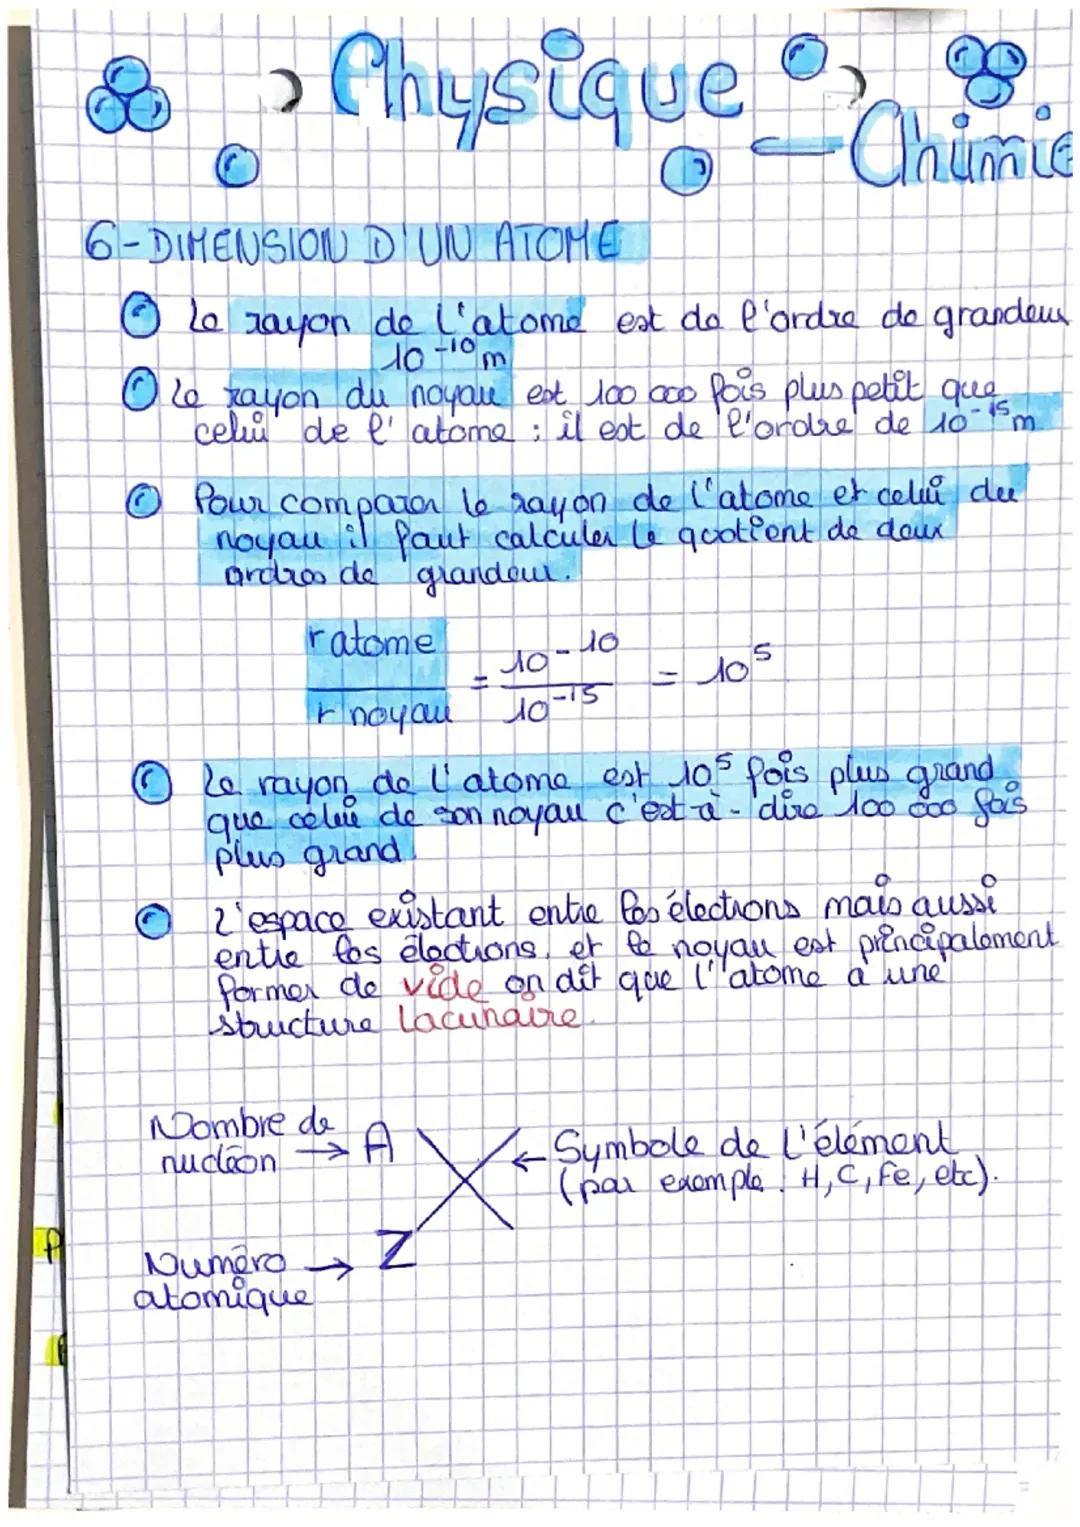 Physique
- Chimie
6-DIMENSION D'UN ATOME
Le rayon de l'atome est de l'ordre de grandeur
10⁻¹⁰ m
Le rayon du noyau est 100 000 fois plus petit que
celui de l'atome ; il est de l'ordre de 10⁻¹⁵ m
Pour comparer le rayon de l'atome et celui du
noyau il faut calculer le quotient de deux
ordres de grandeur.
r atome / r noyau = 10⁻¹⁰ / 10⁻¹⁵ = 10⁵
Le rayon de l'atome est 10⁵ fois plus grand
que celui de son noyau c'est à-dire 100 000 fois
plus grand.
L'espace existant entre les électrons mais aussi
entre les électrons, et le noyau est principalement
former de vide on dit que l'atome a une
structure lacunaire.
Nombre de
nucléon → A
X ← Symbole de l'élément
(par exemple : H, C, Fe, etc).
Numéro → Z
atomique
P